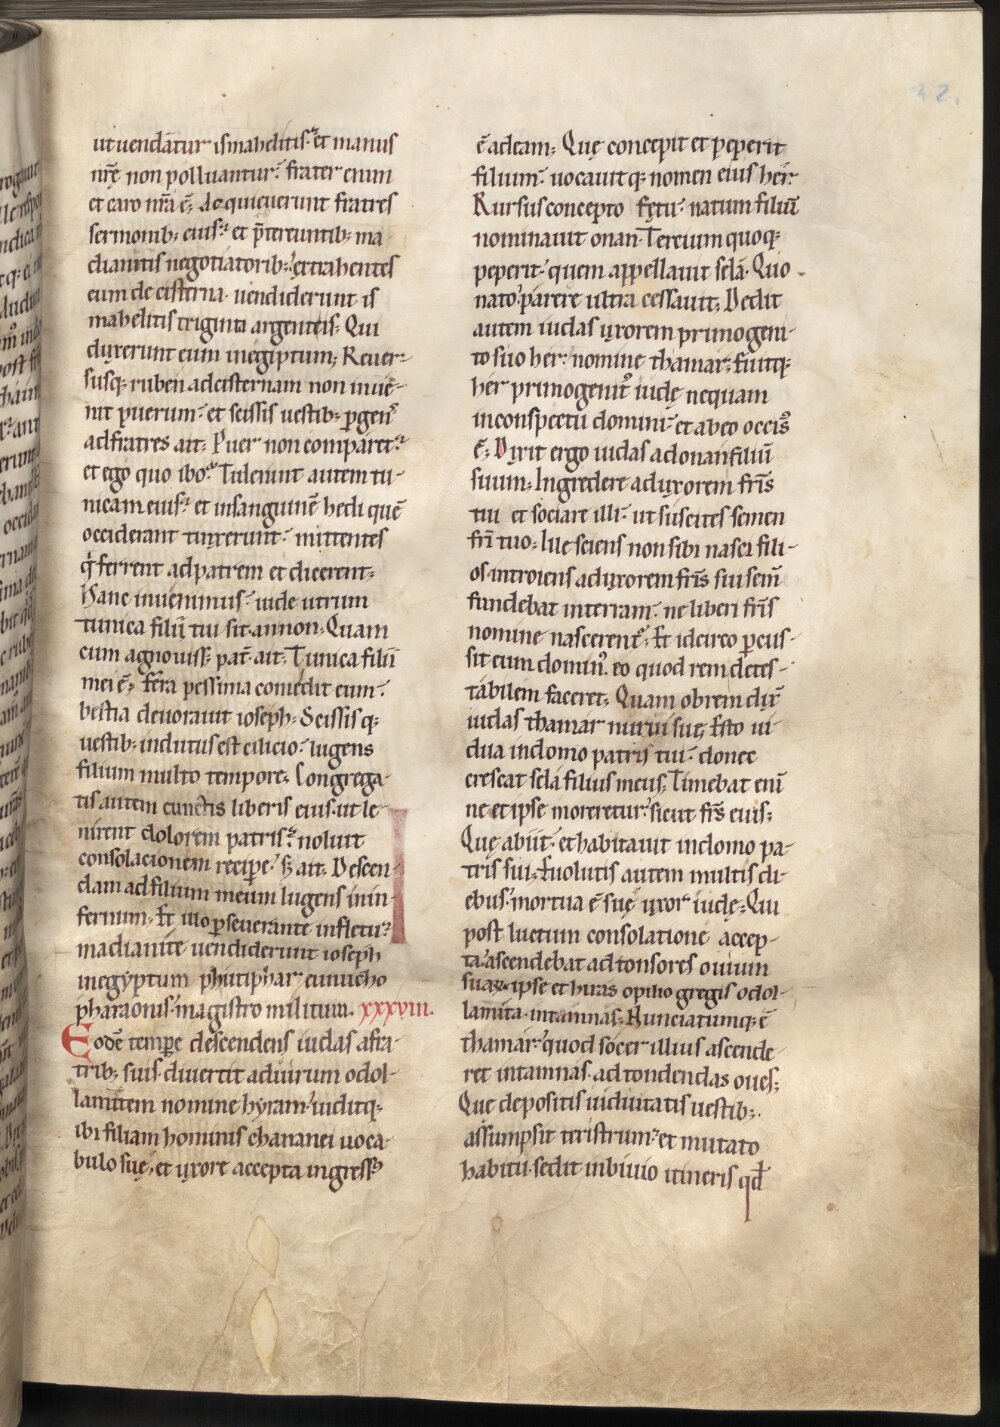 42.
ut uendãtur ismahelitis. et manus
nr̃ę non polluantur. frater enim
et caro nr̃a ē. Acquieuerunt fratres
sermonib; eius. et p̄tereuntib; ma
dianitis negotiatorib; extrahentes
eum de cisterna. uendiderunt is
mahelitis triginta argenteis; Qui
duxerunt eum inegiptum; Reuer-
susq; ruben adcisternam non inuē-
nit puerum. et scissis uestib; pgens
adfratres ait; Puer non comparet.
et ego quo ibo. Tulerunt autem tu-
nicam eius. et insanguinē hedi quē
occiderant tinxerunt. mittentes
q̇ ferrent adpatrem et dicerent;
Hanc inuenimus. uide utrum
tunica filii tui sit. annon; Quam
cum agnouiss; pat̃. ait; Tunica filii
mei ē; fera pessima comedit eum.
bestia deuorauit ioseph; Scissisq;
uestib; indutus est cilicio. lugens
filium multo tempore; Congrega-
tis autem cunctis liberis eius. ut le
nirent dolorem patris. noluit
consolacionem recipe. s; ait; Descen-
dam adfilium meum lugens inin-
fernum; Et illo pseuerante infletu.
madianite uendiderunt ioseph
inegyptum phutiphar eunucho
pharaonis. magistro militum. xxxviii.
Eodē tempe descendens iudas afra-
trib; suis diuertit aduirum odol-
lamitem nomine hyram. uiditq;
ibi filiam hominis chananei uoca-
bulo suę. et uxore accepta ingress9
ē adeam; Quę concepit et peperit
filium. uocauitq; nomen eius her.
Rursus concepto fętu. natum filiū
nominauit onan. Tercium quoq;
peperit. quem appellauit selā. Quo
nato. parere ultra cessauit; Dedit
autem iudas uxorem primogeni-
to suo her. nomine thamar; fuitq;
her primogenit9 iudę nequam
inconspectu domini. et abeo occis9
ē; Dixit ergo iudas adonan filiū
suum; Ingredere aduxorem fr̃is
tui et sociare illi. ut suscites semen
fr̃i tuo; Ille sciens non sibi nasci fili-
os. introiens aduxorem fr̃is sui sem̄
fundebat interram. ne liberi fr̃is
nomine nascerent; Et idcirco pcus-
sit eum domin9. eo quod rem detes-
tabilem faceret; Quam obrem dix̄
iudas thamar nurui suę; Esto ui-
dua indomo patris tui. donec
crescat sela filius meus; Timebat eni̅
ne et ipse moreretur. sicut fr̃s eius;
Quę abiit. et habitauit indomo pa-
tris sui; Euolutis autem multis di-
ebus. mortua ē suę uxor iudę; Qui
post luctum consolatione accep-
ta. ascendebat ad tonsores ouium
suaꝝ. ipse et hiras opilio gregis odol-
lamita. intamnas; Nunciatumq; ē
thamar. quod socer illius ascende-
ret intamnas. ad tondendas oues;
Quę depositis uiduitatis uestib;.
assumpsit teristrum. et mutato
habitu. sedit inbiuio itineris qđ